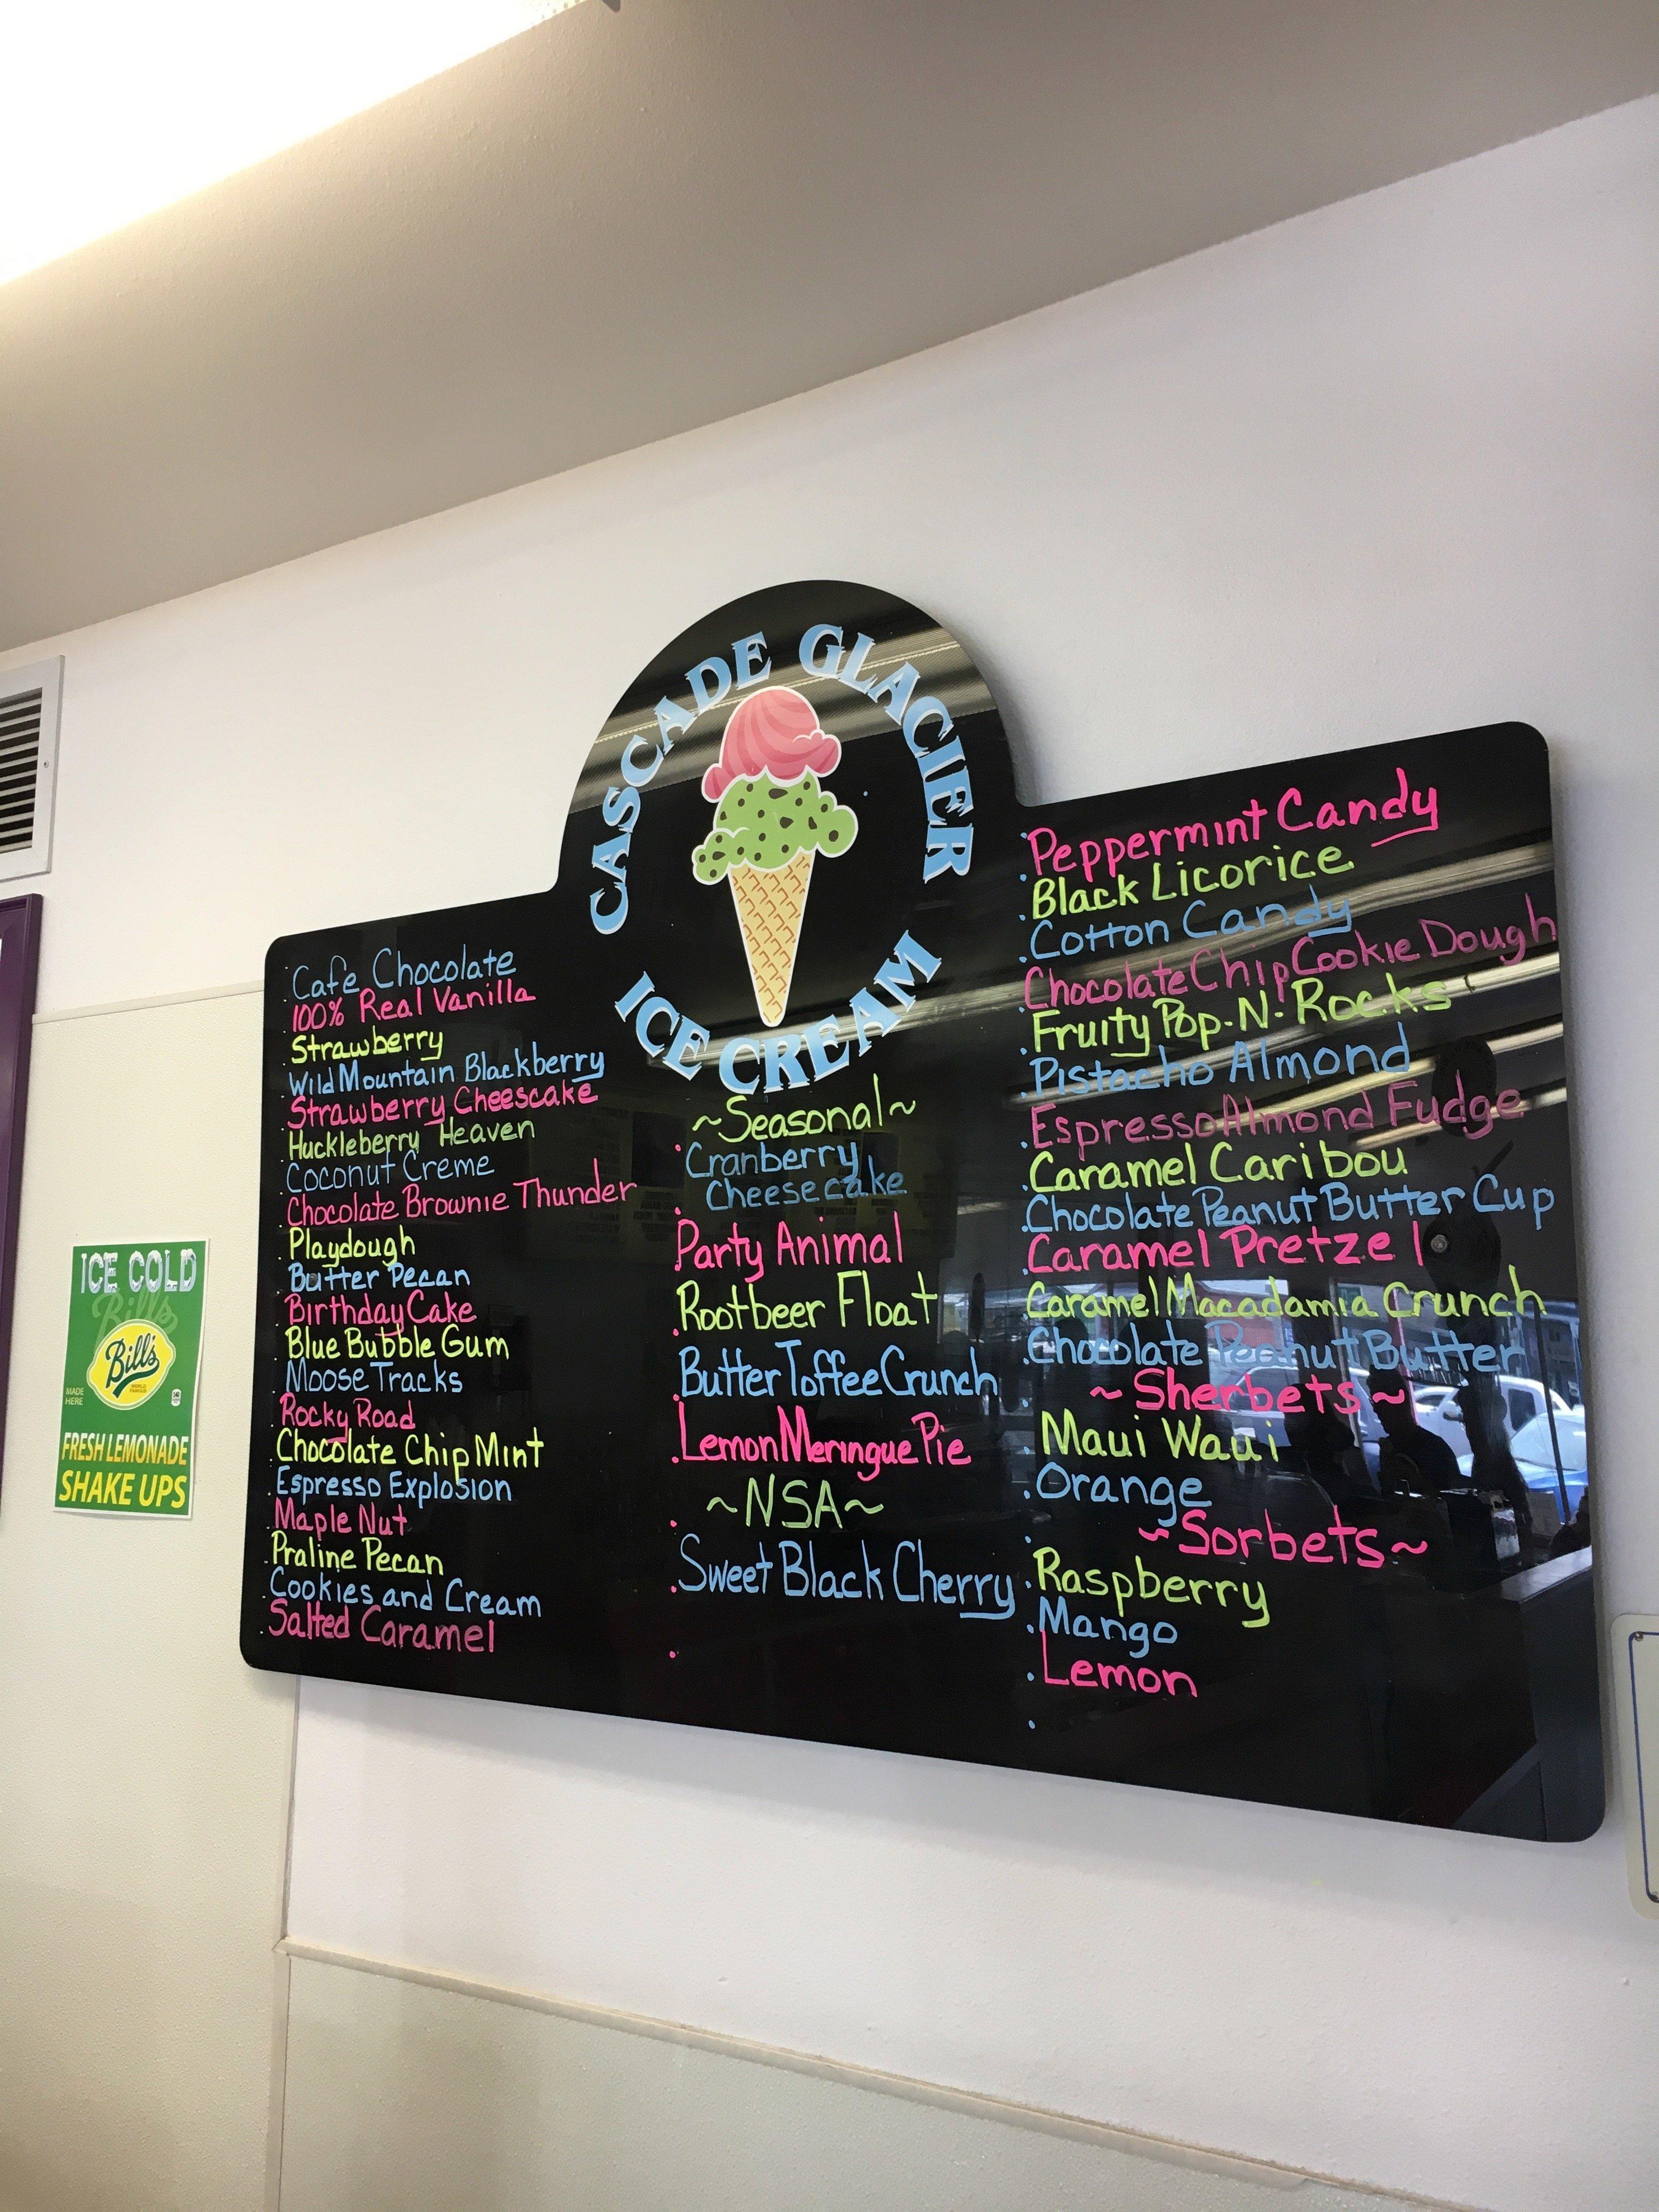 CASCADE GLACIER
ICE CREAM
Cafe Chocolate
100% Real Vanilla
Strawberry
Wild Mountain Blackberry
Strawberry Cheescake
Huckleberry Heaven
Coconut Creme
Chocolate Brownie Thunder
Playdough
Butter Pecan
Birthday Cake
Blue Bubble Gum
Moose Tracks
Rocky Road
Chocolate Chip Mint
Espresso Explosion
Maple Nut
Praline Pecan
Cookies and Cream
Salted Caramel
~Seasonal~
Cranberry
Cheesecake
Party Animal
Rootbeer Float
Butter Toffee Crunch
Lemon Meringue Pie
~NSA~
Sweet Black Cherry
Peppermint Candy
Black Licorice
Cotton Candy
Chocolate Chip Cookie Dough
Fruity Pop-N-Rocks
Pistacho Almond
Espresso Almond Fudge
Caramel Caribou
Chocolate Peanut Butter Cup
Caramel Pretzel
Caramel Macadamia Crunch
Chocolate Peanut Butter
~Sherbets~
Maui Waui
Orange
~Sorbets~
Raspberry
Mango
Lemon
ICE COLD
Bill's
Bill's
WORLD FAMOUS
MADE
HERE
FRESH LEMONADE
SHAKE UPS